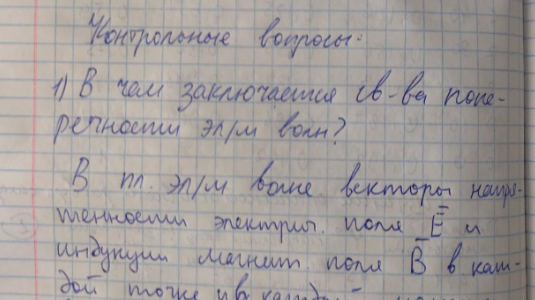 Контрольные вопросы:
1) В чем заключается св-ва попе-
речности эл/м волн?
В пл. эл/м волне векторы напря-
женности электрич. поля E̅ и
индукции магнит. поля B̅ в каж-
дой точке и в каждый